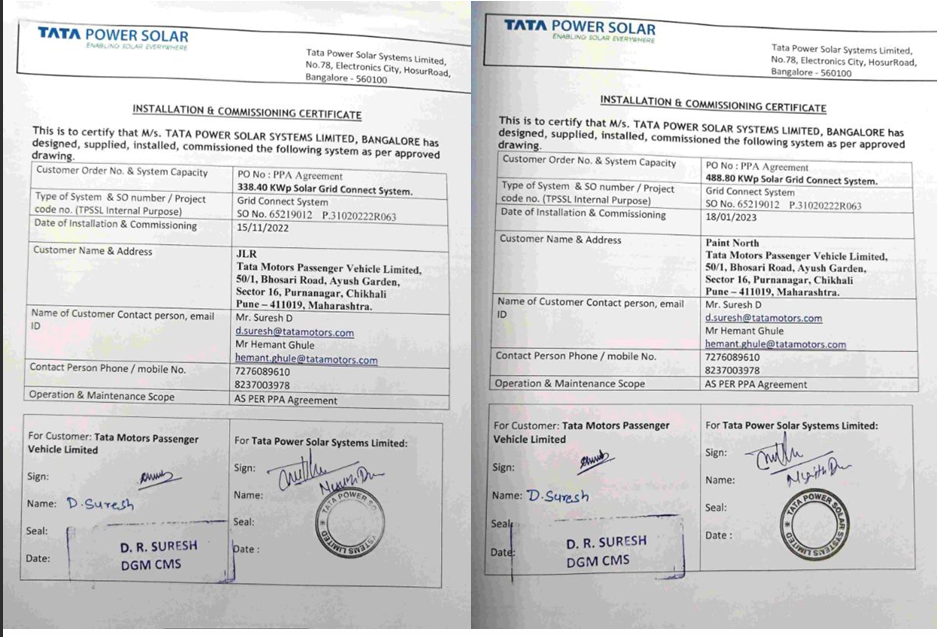 TATA POWER SOLAR
ENABLING SOLAR EVERYWHERE
Tata Power Solar Systems Limited,
No.78, Electronics City, HosurRoad,
Bangalore - 560100
INSTALLATION & COMMISSIONING CERTIFICATE
This is to certify that M/s. TATA POWER SOLAR SYSTEMS LIMITED, BANGALORE has
designed, supplied, installed, commissioned the following system as per approved
drawing.
Customer Order No. & System Capacity
PO No : PPA Agreement
338.40 KWp Solar Grid Connect System.
Type of System & SO number / Project
code no. (TPSSL Internal Purpose)
Grid Connect System
SO No. 65219012 P.31020222R063
Date of Installation & Commissioning
15/11/2022
Customer Name & Address
JLR
Tata Motors Passenger Vehicle Limited,
50/1, Bhosari Road, Ayush Garden,
Sector 16, Purnanagar, Chikhali
Pune – 411019, Maharashtra.
Name of Customer Contact person, email
ID
Mr. Suresh D
d.suresh@tatamotors.com
Mr Hemant Ghule
hemant.ghule@tatamotors.com
Contact Person Phone / mobile No.
7276089610
8237003978
Operation & Maintenance Scope
AS PER PPA Agreement
For Customer: Tata Motors Passenger
Vehicle Limited
Sign:
Name: D. Suresh
Seal:
Date:
D. R. SURESH
DGM CMS
For Tata Power Solar Systems Limited:
Sign:
Name:
Seal:
Date :
TATA POWER SO
STEMS LIMITED
TATA POWER SOLAR
ENABLING SOLAR EVERYWHERE
Tata Power Solar Systems Limited,
No.78, Electronics City, HosurRoad,
Bangalore - 560100
INSTALLATION & COMMISSIONING CERTIFICATE
This is to certify that M/s. TATA POWER SOLAR SYSTEMS LIMITED, BANGALORE has
designed, supplied, installed, commissioned the following system as per approved
drawing.
Customer Order No. & System Capacity
PO No : PPA Agreement
488.80 KWp Solar Grid Connect System.
Type of System & SO number / Project
code no. (TPSSL Internal Purpose)
Grid Connect System
SO No. 65219012 P.31020222R063
Date of Installation & Commissioning
18/01/2023
Customer Name & Address
Paint North
Tata Motors Passenger Vehicle Limited,
50/1, Bhosari Road, Ayush Garden,
Sector 16, Purnanagar, Chikhali
Pune – 411019, Maharashtra.
Name of Customer Contact person, email
ID
Mr. Suresh D
d.suresh@tatamotors.com
Mr Hemant Ghule
hemant.ghule@tatamotors.com
Contact Person Phone / mobile No.
7276089610
8237003978
Operation & Maintenance Scope
AS PER PPA Agreement
For Customer: Tata Motors Passenger
Vehicle Limited
Sign:
Name: D. Suresh
Seal:
Date:
D. R. SURESH
DGM CMS
For Tata Power Solar Systems Limited:
Sign:
Name:
Seal:
Date :
TATA POWER SOLAR SYSTEMS LIMITED